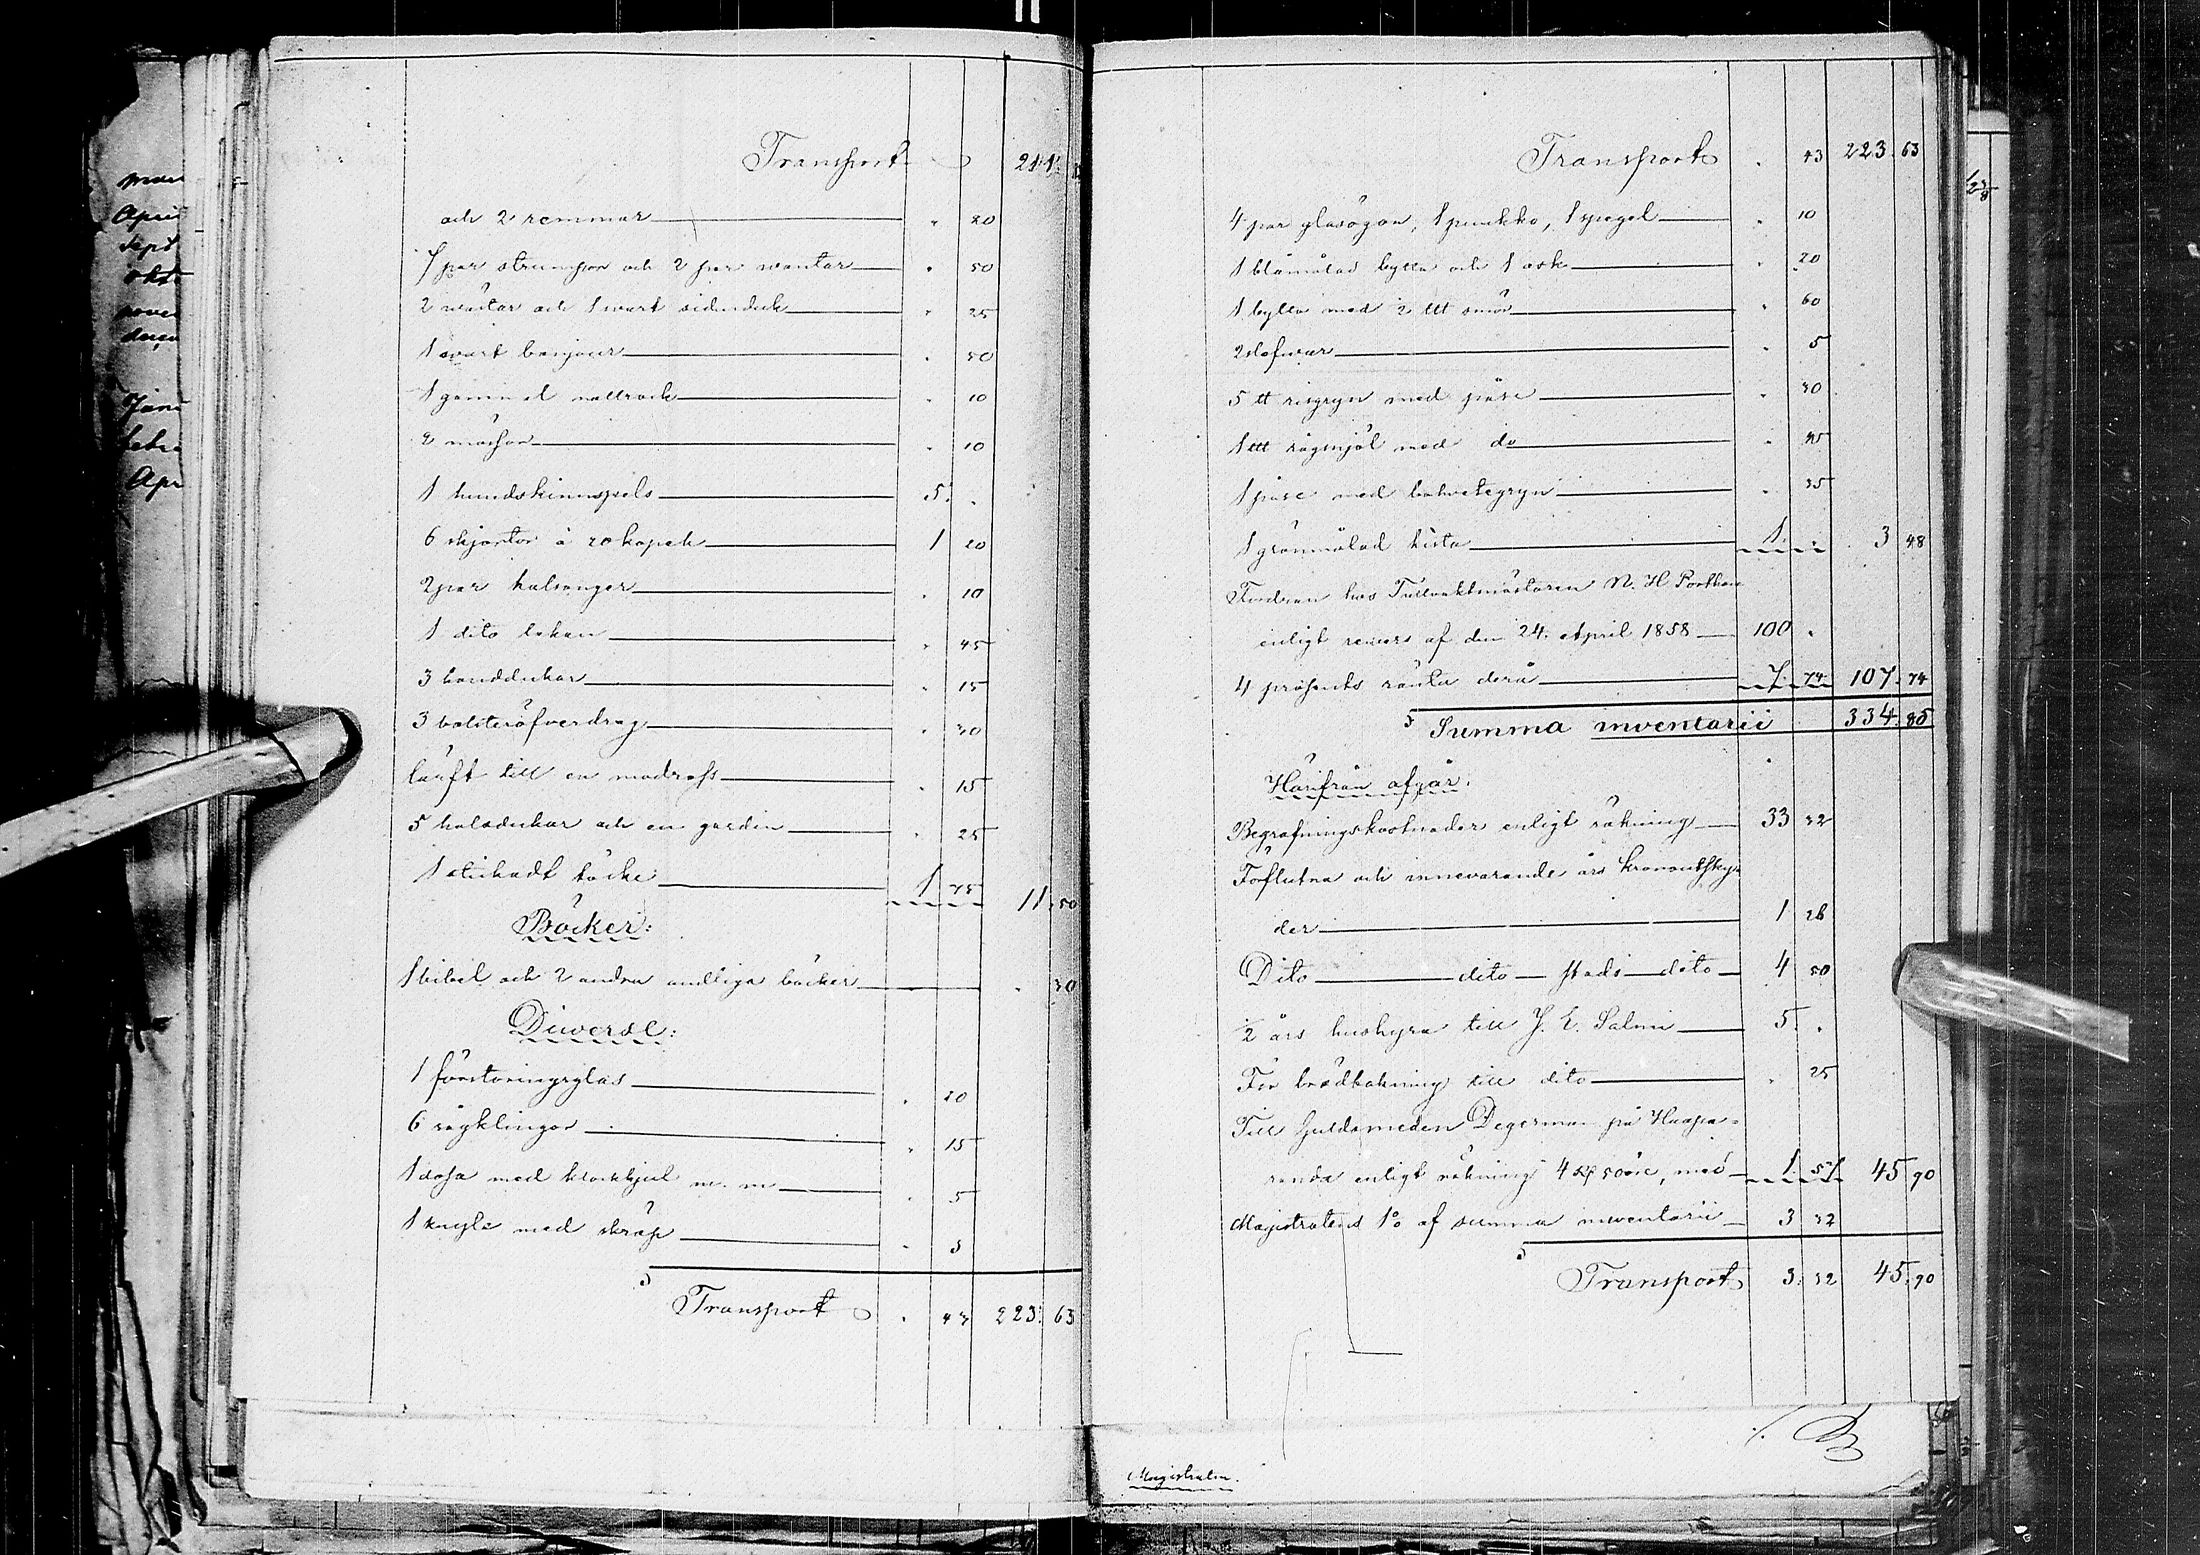 Transport 211.
och 2 remmar " 20
7 par strumpor och 2 par wantar " 50
2 wästar och 1 swart sidenduk " 25
1 swart bonjour " 50
1 gammal nattrock " 10
2 mössor " 10
1 hundskinnspels 5. "
6 skjortor à 20 kopek 1 20
2 par kalsonger " 10
1 dito lakan " 45
3 handdukar " 15
3 bolsteröfverdrag " 30
tåuft till en madrass " 15
5 halsdukar och en gardin " 25
1 stickadt täcke 1 75 11.50
Böcker:
1 bibel och 2 andra andliga böcker " 30
Diwerse:
1 förstoringsglas " 20
6 sågklingor " 15
1 dosa med klockhjul m. m. " 5
1 knyte med skräp " 3
Transport " 43 223. 63
Transport " 43 223. 63
4 par glasögon, 1 puukko, 1 spegel " 10
1 blåmålad bytta och 1 ask " 20
1 bytta med 2 ltt smör " 60
2 slefwar " 5
5 tt risgryn med påse " 30
1 ltt rågmjöl med do " 45
1 påse med bohvetegryn " 35
1 grönmålad kista 1. " 3 48
Fordran hos Tullvaktmästaren N. H. Porthan
enligt revers af den 24. April 1858 100 "
4 prosents ränta derå 7. 74 107. 74
Summa inventarii 334. 85
Härifrån afgår:
Begrafningskostnader enligt räkning 33 32
Förflutna och innevarande års kronoutskyl
der 1 26
Dito dito stads dito 4 50
½ års hushyra till J. E. Salmi 5. "
För brödbakning till dito " 25
Till Guldsmeden Degerman på Haapa=
randa enligt räkning 4 50 öre, med 1. 57 45 90
Magistratens 1% af summa inventarii 3 32
Transport 3. 32 45. 90
Magistraten.